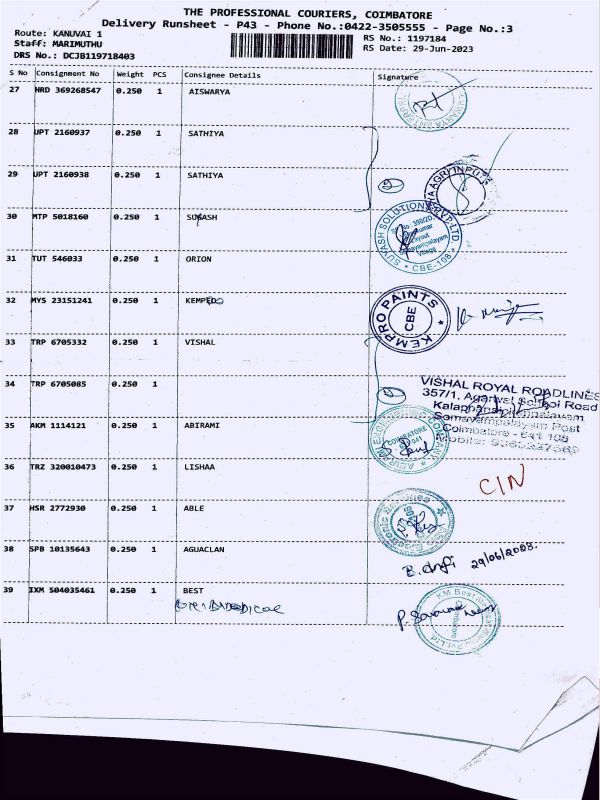 THE PROFESSIONAL COURIERS, COIMBATORE
Delivery Runsheet - P43 - Phone No.:0422-3505555 - Page No.:3
Route: KANUVAI 1
RS No.: 1197184
Staff: MARIMUTHU
RS Date: 29-Jun-2023
DRS No.: DCJB119718403
S No Consignment No Weight PCS Consignee Details Signature
27 HRD 369268547 0.250 1 AISWARYA
28 UPT 2160937 0.250 1 SATHIYA
29 UPT 2160938 0.250 1 SATHIYA
AGRI INPUTS
30 MTP 5018160 0.250 1
SUVASH SOLUTION PVT LTD
CBE-108
31 TUT 546033 0.250 1 ORION
32 MYS 23151241 0.250 1
KEMPRO PAINTS
CBE
33 TRP 6705332 0.250 1 VISHAL
34 TRP 6705085 0.250 1
VISHAL ROYAL ROADLINES
357/1, Agarwal School Road
Somayampalayam Post
Coimbatore - 641 108
35 AKM 1114121 0.250 1 ABIRAMI
COIMBATORE
36 TRZ 320010473 0.250 1 LISHAA
CIN
37 HSR 2772930 0.250 1 ABLE
38 SPB 10135643 0.250 1 AGUACLAN
29/06/2023.
39 IXM 504035461 0.250 1 BEST
KM Best